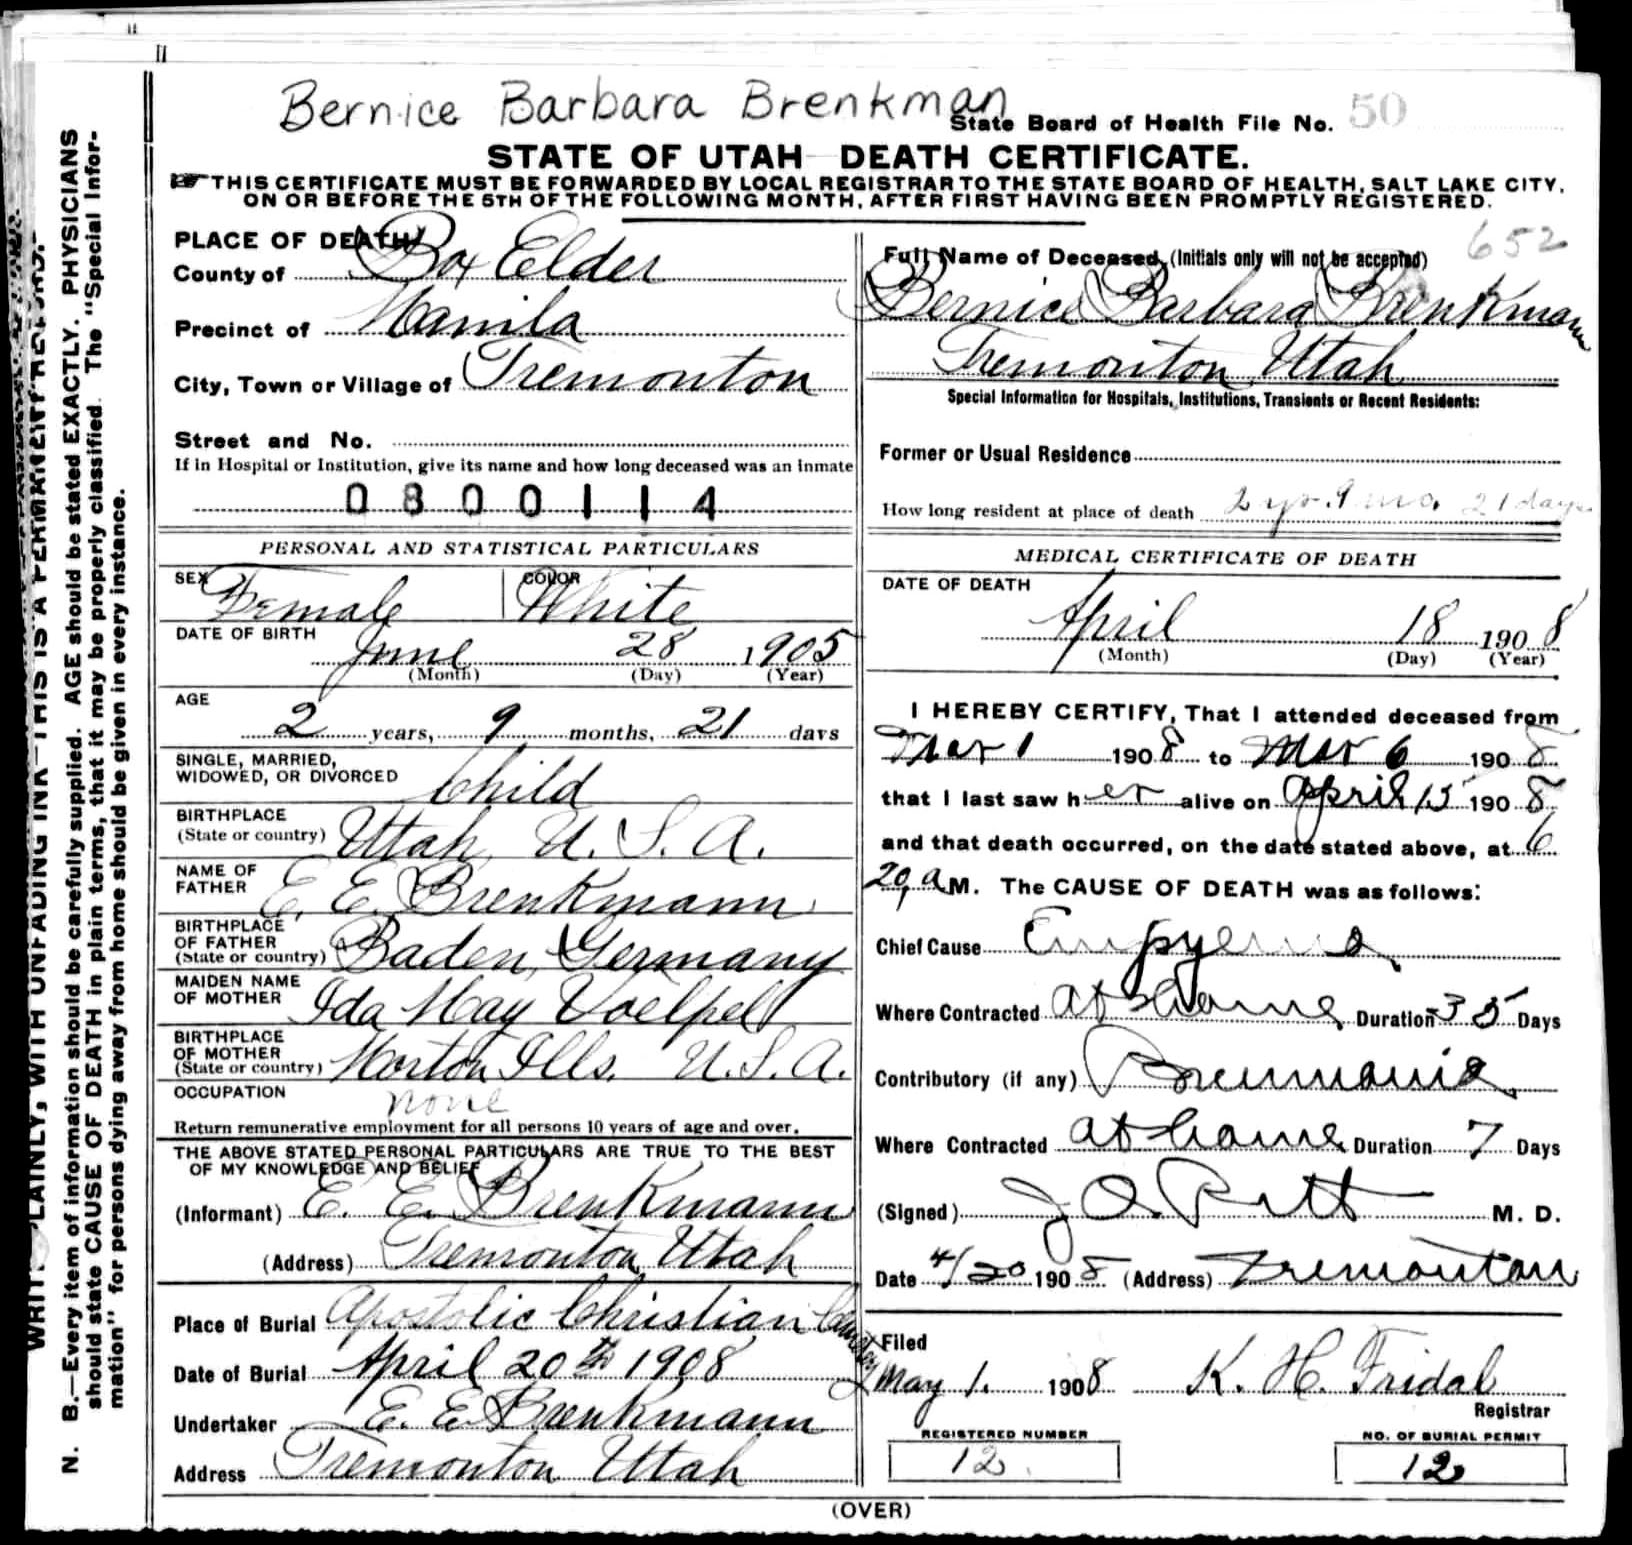 Bernice Barbara Brenkman
State Board of Health File No. 50
STATE OF UTAH DEATH CERTIFICATE.
THIS CERTIFICATE MUST BE FORWARDED BY LOCAL REGISTRAR TO THE STATE BOARD OF HEALTH, SALT LAKE CITY,
ON OR BEFORE THE 5TH OF THE FOLLOWING MONTH, AFTER FIRST HAVING BEEN PROMPTLY REGISTERED.
PLACE OF DEATH
County of Box Elder
Precinct of Manila
City, Town or Village of Tremonton
Street and No.
If in Hospital or Institution, give its name and how long deceased was an inmate
0800114
PERSONAL AND STATISTICAL PARTICULARS
SEX Female COLOR White
DATE OF BIRTH
June 28 1905
(Month) (Day) (Year)
AGE
2 years, 9 months, 21 days
SINGLE, MARRIED,
WIDOWED, OR DIVORCED Child
BIRTHPLACE
(State or country) Utah, U. S. A.
NAME OF
FATHER E. E. Brenkmann
BIRTHPLACE
OF FATHER
(State or country) Baden, Germany
MAIDEN NAME
OF MOTHER Ida May Voelpel
BIRTHPLACE
OF MOTHER
(State or country) Morton Ills. U. S. A.
OCCUPATION none
Return remunerative employment for all persons 10 years of age and over.
THE ABOVE STATED PERSONAL PARTICULARS ARE TRUE TO THE BEST
OF MY KNOWLEDGE AND BELIEF
(Informant) E. E. Brenkmann
(Address) Tremonton Utah
Place of Burial Apostolic Christian Cemetery
Date of Burial April 20th 1908
Undertaker E. E. Brenkmann
Address Tremonton Utah
652
Full Name of Deceased, (Initials only will not be accepted)
Bernice Barbara Brenkmann
Tremonton Utah
Special Information for Hospitals, Institutions, Transients or Recent Residents:
Former or Usual Residence
How long resident at place of death 2 yr. 9 mo. 21 days
MEDICAL CERTIFICATE OF DEATH
DATE OF DEATH
April 18 1908
(Month) (Day) (Year)
I HEREBY CERTIFY, That I attended deceased from
Mar 1 1908 to Mar 6 1908
that I last saw her alive on April 15 1908
and that death occurred, on the date stated above, at 6
20, a M. The CAUSE OF DEATH was as follows:
Chief Cause Empyema
Where Contracted at home Duration 35 Days
Contributory (if any) Pneumonia
Where Contracted at home Duration 7 Days
(Signed) M. D.
Date 4/20 1908 (Address) Tremonton
Filed
May 1. 1908 K. H. Fridal
Registrar
REGISTERED NUMBER NO. OF BURIAL PERMIT
12. 12
(OVER)
N. B.—Every item of information should be carefully supplied. AGE should be stated EXACTLY. PHYSICIANS
should state CAUSE OF DEATH in plain terms, that it may be properly classified. The "Special Infor-
mation" for persons dying away from home should be given in every instance.
PLAINLY, WITH UNFADING INK—THIS IS A PERMANENT RECORD.